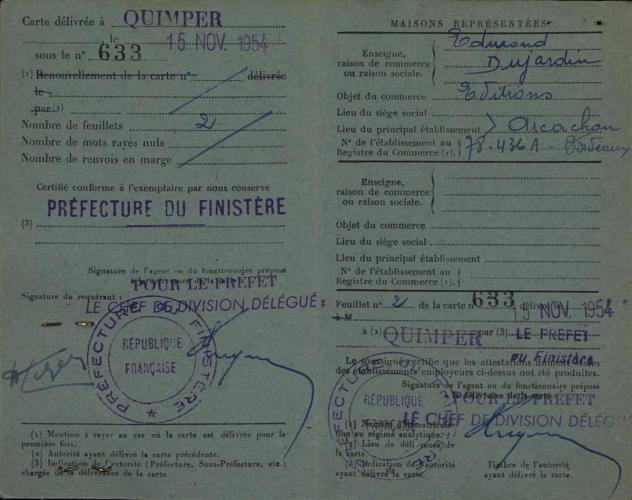 Carte délivrée à QUIMPER
le 15 NOV. 1954
sous le n° 633
(1) Renouvellement de la carte n° délivrée
le
par (3)
Nombre de feuillets 2
Nombre de mots rayés nuls
Nombre de renvois en marge
Certifié conforme à l'exemplaire par nous conservé
PRÉFECTURE DU FINISTÈRE
(3)
Signature de l'agent ou du fonctionnaire préposé
POUR LE PRÉFET
Signature du requérant :
LE CHEF DE DIVISION DÉLÉGUÉ :
PRÉFECTURE DU FINISTÈRE
RÉPUBLIQUE
FRANÇAISE
(1) Mention à rayer au cas où la carte est délivrée pour la
première fois.
(2) Autorité ayant délivré la carte précédente.
(3) Indication de l'autorité (Préfecture, Sous-Préfecture, etc.)
chargée de la délivrance de la carte
MAISONS REPRÉSENTÉES
Enseigne,
raison de commerce
ou raison sociale.
Edmond
Dujardin
Objet du commerce Editions
Lieu du siège social
Lieu du principal établissement Arcachon
N° de l'établissement au
Registre du Commerce (1).
78.436A Bordeaux
Enseigne,
raison de commerce
ou raison sociale.
Objet du commerce
Lieu du siège social
Lieu du principal établissement
N° de l'établissement au
Registre du Commerce (1).
Feuillet n° 2 de la carte n° 633 délivrée 15 NOV. 1954
à M
à (2) QUIMPER par (3) LE PREFET
du Finistère
Le soussigné certifie que les attestations
des établissements employeurs ci-dessus ont été produites.
Signature de l'agent ou du fonctionnaire préposé
à la délivrance de la carte
POUR LE PRÉFET
LE CHEF DE DIVISION DÉLÉGUÉ
RÉPUBLIQUE
(1) Numéro
tion au régime analytique.
(2) Lieu de délivrance de
la carte.
(3) Indication de l'autorité
ayant délivré la carte.
Timbre de l'autorité
ayant délivré la carte.